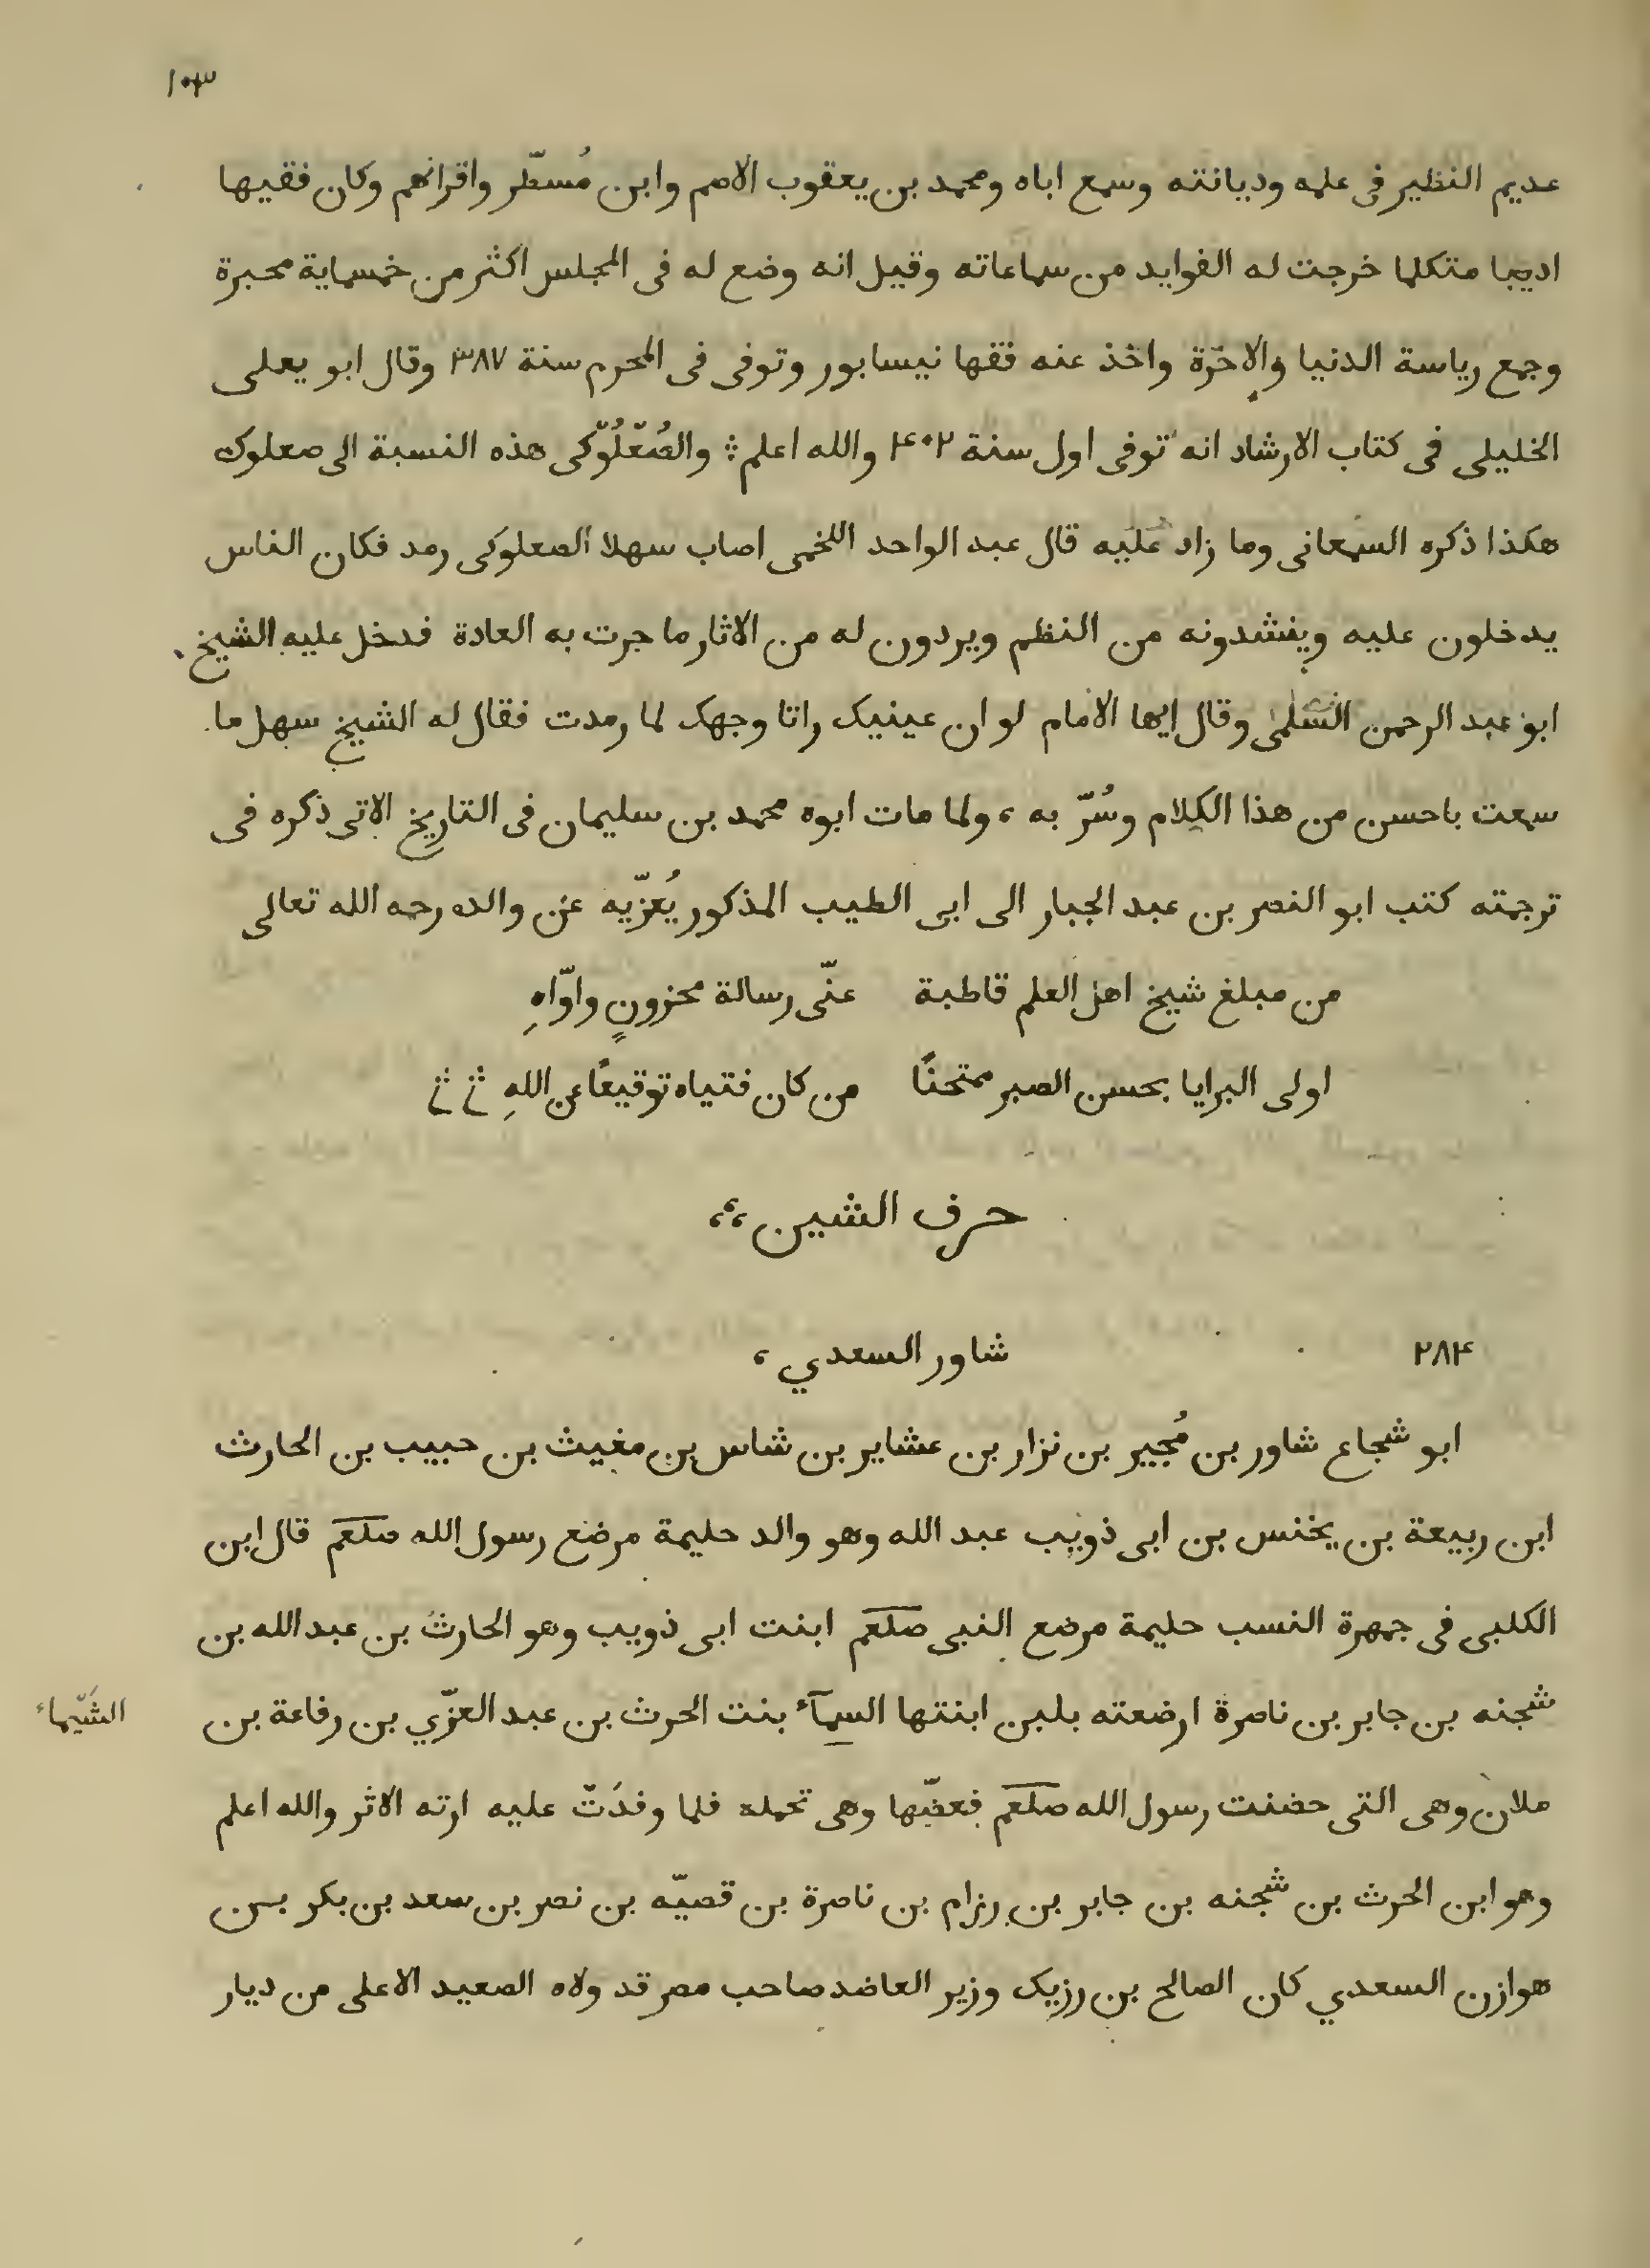 ١٠٣
عديم النظير فى علمه وديانته وسمع اباه ومحمد بن يعقوب الاصم وابن مُسطّر واقرانهم وكان فقيها
اديبا متكلما خرجت له الفوايد من سماعاته وقيل انه وضع له فى المجلس اكثر من خمسماية محبرة
وجمع رياسة الدنيا والاخرة واخذ عنه فقها نيسابور وتوفى فى المحرم سنة ٣٨٧ وقال ابو يعلى
الخليلى فى كتاب الارشاد انه توفى اول سنة ۴٠٢ والله اعلم ؛ والصُعْلُوكى هذه النسبة الى صعلوك
هكذا ذكره السمعانى وما زاد عليه قال عبد الواحد اللخمى اصاب سهلا الصعلوكى رمد فكان الناس
يدخلون عليه وينشدونه من النظم ويردون له من الاثار ما جرت به العادة فدخل عليه الشيخ
ابو عبد الرحمن السُلمى وقال ايها الامام لو ان عينيك راتا وجهك لما رمدت فقال له الشيخ سهل ما
سمعت باحسن من هذا الكلام وسُرّ به ، ولما مات ابوه محمد بن سليمان فى التاريخ الاتى ذكره فى
ترجمته كتب ابو النصر بن عبد الجبار الى ابى الطيب المذكور يُعزّيه عن والده رحمه الله تعالى
من مبلغ شيخ اهل العلم قاطبة عنّى رسالة محزونٍ واوّاهِ
اولى البرايا بحسن الصبر ممتحنًا من كان فتياه توقيعًا عن اللهِ
حرف الشين ،،،
٢٨۴ شاور السعدي ،
ابو شجاع شاور بن مُجير بن نزار بن عشاير بن شاس بن مغيث بن حبيب بن الحارث
ابن ربيعة بن يخنس بن ابى ذويب عبد الله وهو والد حليمة مرضع رسول الله صلعم قال ابن
الكلبى فى جمهرة النسب حليمة مرضع النبى صلعم ابنت ابى ذويب وهو الحارث بن عبد الله بن
شجنه بن جابر بن ناصرة ارضعته بلبن ابنتها السيمآء بنت الحرث بن عبد العزّي بن رفاعة بن
الشَيّماء
ملان وهى التى حضنت رسول الله صلعم فعضّها وهى تحمله فلما وفدَتْ عليه ارته الاثر والله اعلم
وهو ابن الحرث بن شجنه بن جابر بن رزام بن ناصرة بن قصيّه بن نصر بن سعد بن بكر بن
هوازن السعدي كان الصالح بن رزيك وزير العاضد صاحب مصر قد ولاه الصعيد الاعلى من ديار